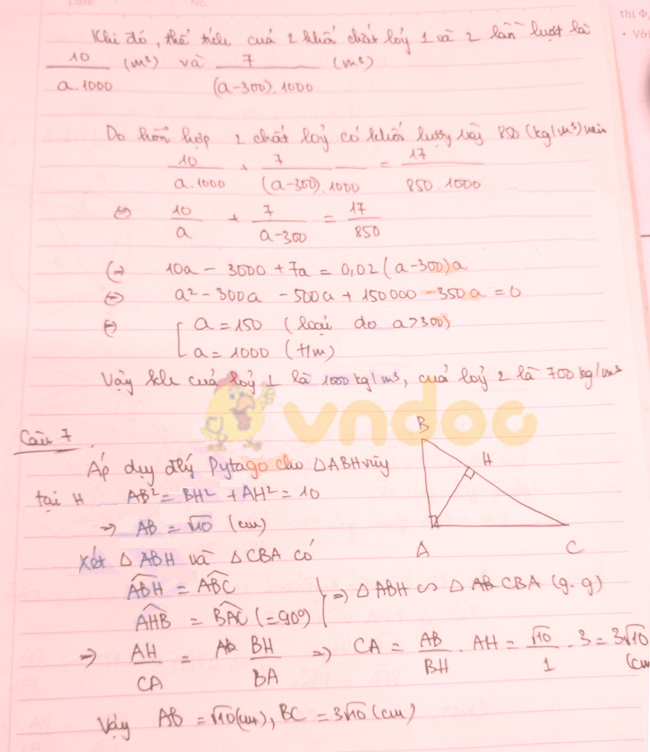 Khi đó, thể tích của 2 khối chất lỏng 1 và 2 lần lượt là
10/(a.1000) (m³) và 7/((a-300).1000) (m³)
Do hỗn hợp 2 chất lỏng có khối lượng riêng 850 (kg/m³) nên
10/(a.1000) + 7/((a-300).1000) = 17/(850.1000)
⇔ 10/a + 7/(a-300) = 17/850
⇔ 10a - 3000 + 7a = 0,02(a-300)a
⇔ a² - 300a - 500a + 150000 - 350a = 0
⇔ [ a = 150 (loại do a>300)
a = 1000 (t/m)
Vậy klr của lỏng 1 là 1000 kg/m³, của lỏng 2 là 700 kg/m³
vndoc
Câu 7
Áp dụng định lý Pytago cho △ABH vuông
tại H AB² = BH² + AH² = 10
⇒ AB = √10 (cm)
B
H
A
C
Xét △ABH và △CBA có
ABH = ABC
AHB = BAC (=90°)
} ⇒ △ABH ∽ △CBA (g-g)
⇒ AH/CA = BH/BA ⇒ CA = AB/BH . AH = √10/1 . 3 = 3√10 (cm)
Vậy AB = √10 (cm), BC = 3√10 (cm)